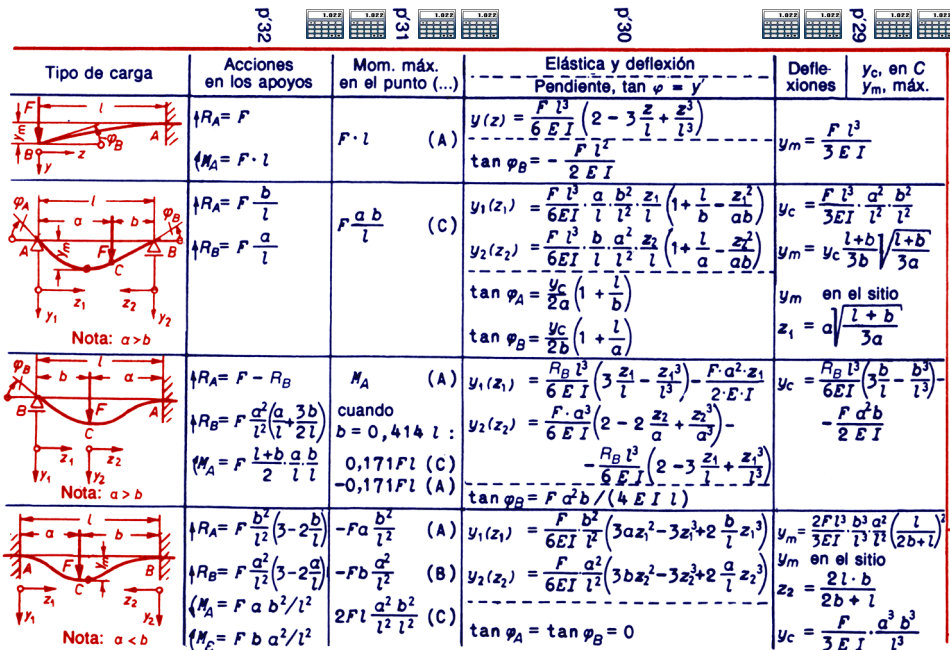 p'32 p'31 p'30 p'29
1.022 1.022 1.022 1.022 1.022 1.022 1.022 1.022
Tipo de carga
Acciones en los apoyos
Mom. máx. en el punto (...)
Elástica y deflexión
Pendiente, tan φ = y'
Defle-xiones
y_c, en C
y_m, máx.
F l A y_m φ_B B z y
↑R_A = F
M_A = F · l
F · l (A)
y(z) = F l³/(6 E I) (2 − 3 z/l + z³/l³)
tan φ_B = − F l²/(2 E I)
y_m = F l³/(3 E I)
φ_A l φ_B a b A y_m F B C z₁ z₂ y₁ y₂
Nota: a > b
↑R_A = F b/l
↑R_B = F a/l
F a b/l (C)
y₁(z₁) = F l³/(6EI) · a/l · b²/l² · z₁/l (1 + l/b − z₁²/(ab))
y₂(z₂) = F l³/(6EI) · b/l · a²/l² · z₂/l (1 + l/a − z₂²/(ab))
tan φ_A = y_c/(2a) (1 + l/b)
tan φ_B = y_c/(2b) (1 + l/a)
y_c = F l³/(3EI) · a²/l² · b²/l²
y_m = y_c (l+b)/(3b) √((l+b)/(3a))
y_m en el sitio
z₁ = a √((l + b)/(3a))
φ_B l b a B F A C z₁ z₂ y₁ y₂
Nota: a > b
↑R_A = F − R_B
↑R_B = F a²/l² (a/l + 3b/(2l))
M_A = F (l+b)/2 · a/l · b/l
M_A (A)
cuando
b = 0,414 l :
0,171Fl (C)
−0,171Fl (A)
y₁(z₁) = R_B l³/(6 E I) (3 z₁/l − z₁³/l³) − F·a²·z₁/(2·E·I)
y₂(z₂) = F·a³/(6 E I) (2 − 2 z₂/a + z₂³/a³) −
− R_B l³/(6 E I) (2 − 3 z₁/l + z₁³/l³)
tan φ_B = F a² b / (4 E I l)
y_c = R_B l³/(6 E I) (3 b/l − b³/l³) −
− F a² b/(2 E I)
l a b A F y_m B C z₁ z₂ y₁ y₂
Nota: a < b
↑R_A = F b²/l² (3−2 b/l)
↑R_B = F a²/l² (3−2 a/l)
M_A = F a b²/l²
M_E = F b a²/l²
−Fa b²/l² (A)
−Fb a²/l² (B)
2Fl a²/l² b²/l² (C)
y₁(z₁) = F/(6EI) · b²/l² (3az₁² − 3z₁³ + 2 b/l z₁³)
y₂(z₂) = F/(6EI) a²/l² (3bz₂² − 3z₂³ + 2 a/l z₂³)
tan φ_A = tan φ_B = 0
y_m = 2Fl³/(3EI) · b³/l³ · a²/l² (l/(2b+l))²
y_m en el sitio
z₂ = 2l·b/(2b + l)
y_c = F/(3 E I) · a³ b³/l³